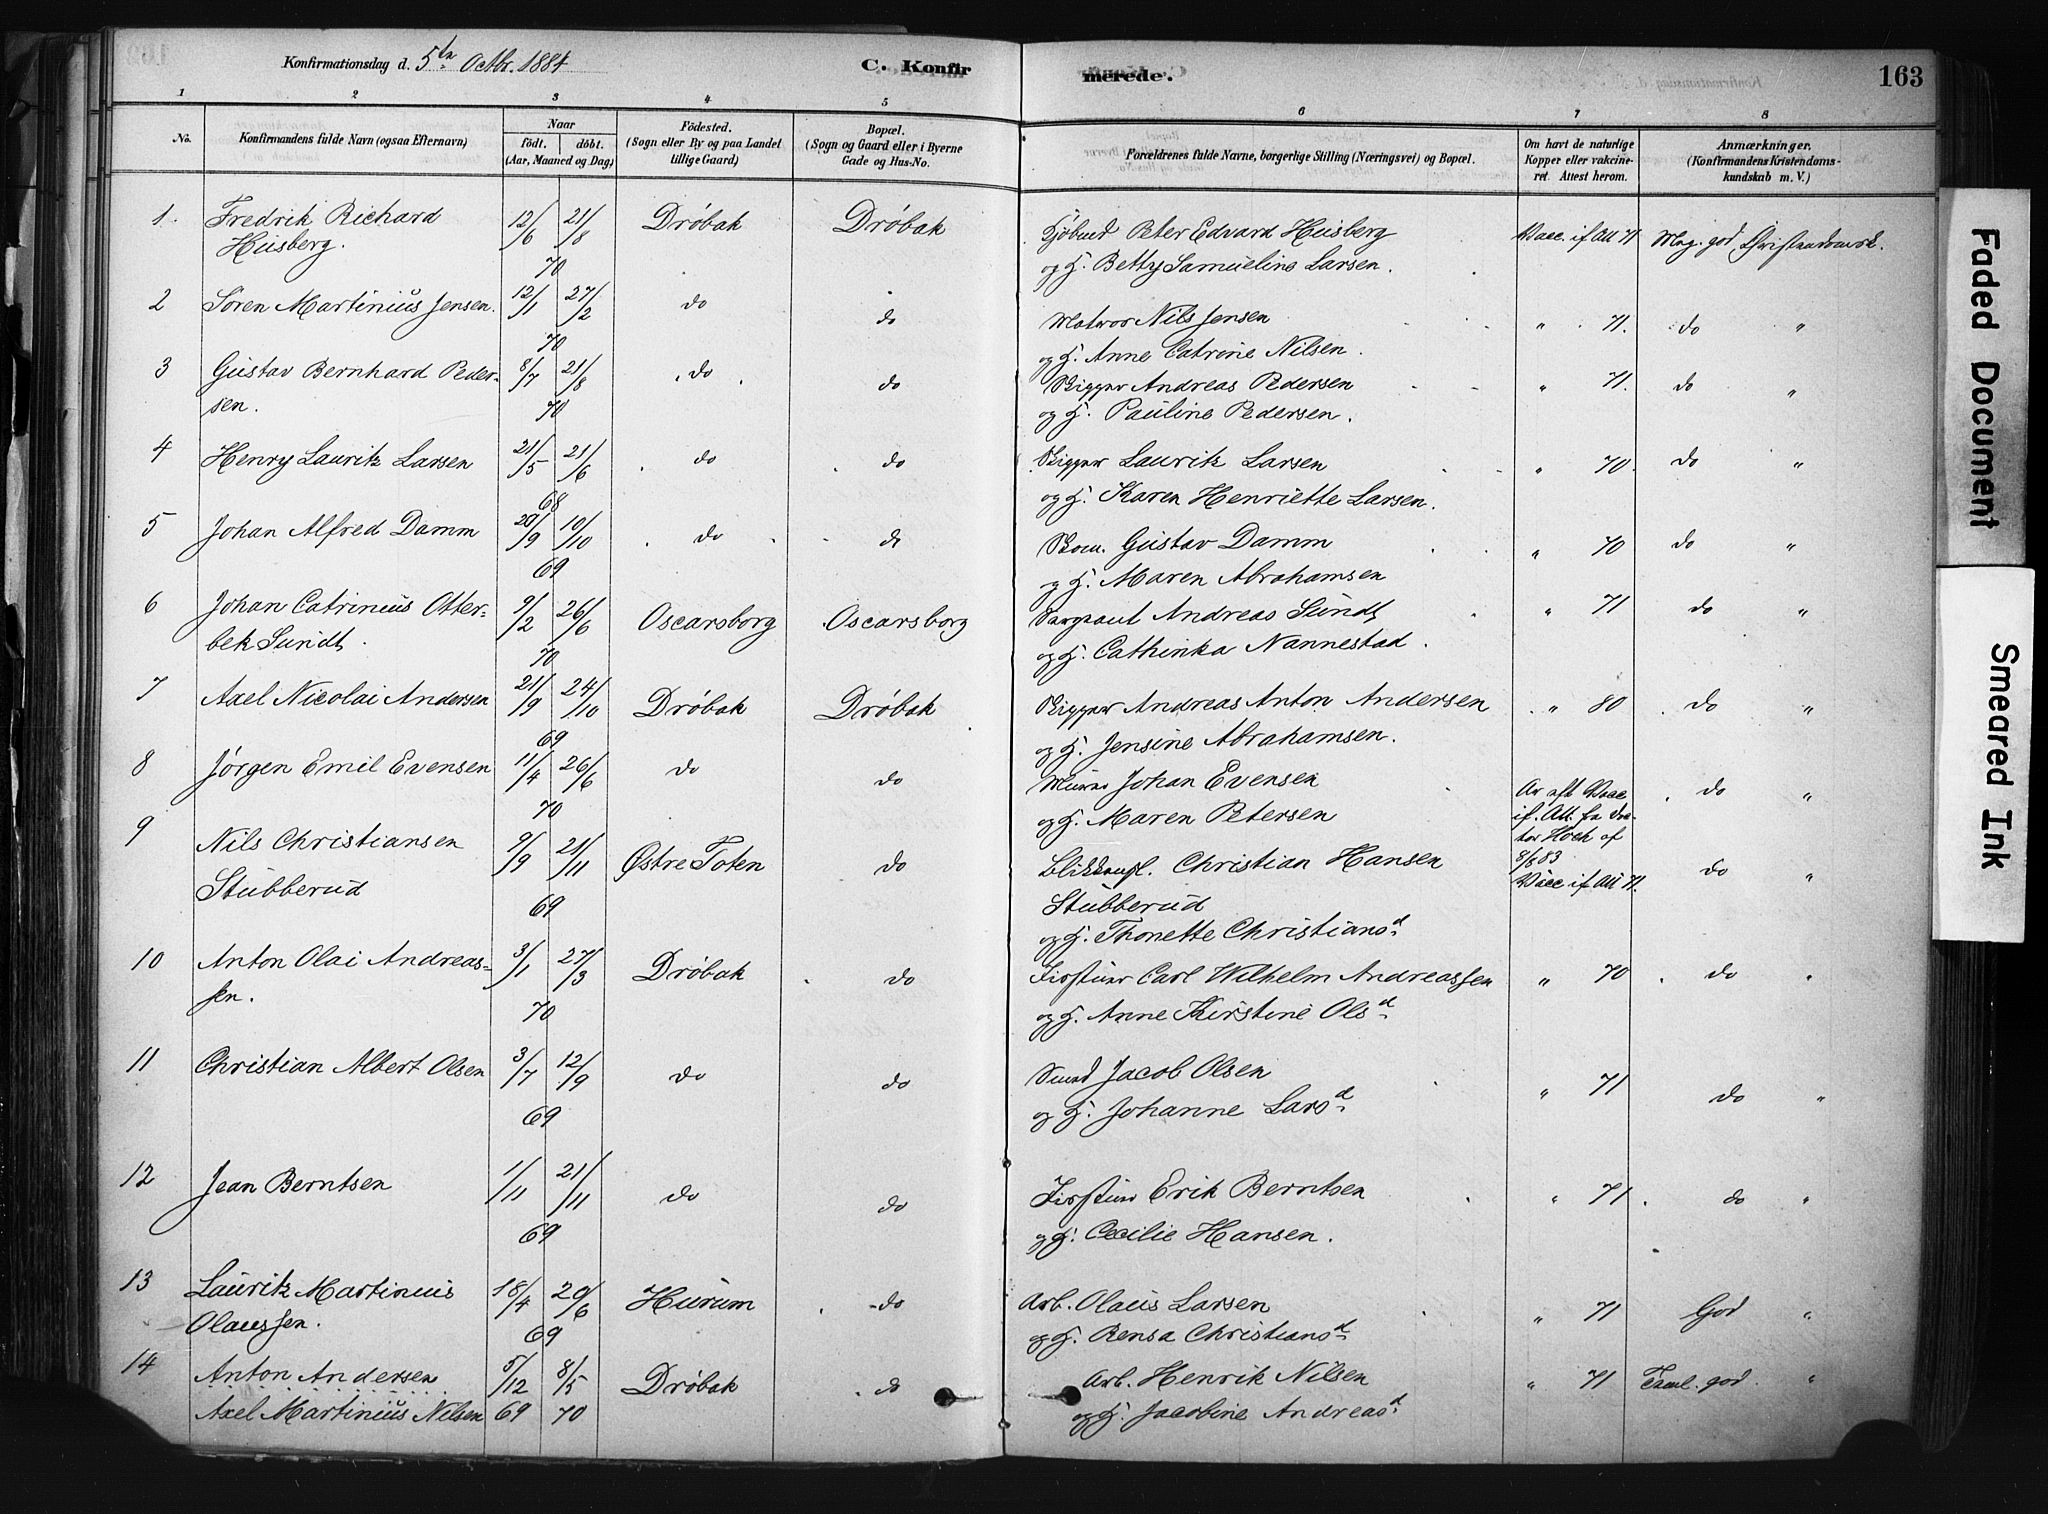 Konfirmationsdag d. 5te Octbr. 1884
C. Konfir
merede.
163
1 2 3 4 5 6 7 8
No.
Konfirmandens fulde Navn (ogsaa Efternavn)
Naar
födt. döbt.
(Aar, Maaned og Dag)
Födested.
(Sogn eller By og paa Landet
tillige Gaard)
Bopæl.
(Sogn og Gaard eller i Byerne
Gade og Hus-No.
Forældrenes fulde Navne, borgerlige Stilling (Næringsvei) og Bopæl.
Om havt de naturlige
Kopper eller vakcine-
ret. Attest herom.
Anmærkninger.
(Konfirmandens Kristendoms-
kundskab m. V.)
1. Fredrik Richard 12/6 21/8 Dröbak Dröbak Kjöbmd Peter Edvard Husberg Vacc. if Att 71 Meg. god Christendomsk.
Husberg. 70 og H. Betty Samueline Larsen.
2 Sören Martinius Jensen. 12/1 27/2 do do Matros Nils Jensen " 71. do "
70 og H. Anne Catrine Nilsen.
3 Gustav Bernhard Peder- 8/7 21/8 do do Skipper Andreas Pedersen " 71. do "
sen. 70 og H. Pauline Pedersen.
4 Henry Lauritz Larsen 21/5 21/6 do do Skipper Lauritz Larsen " 70. do "
68 og H. Karen Henriette Larsen.
5 Johan Alfred Damm 20/9 10/10 do do Skom. Gustav Damm " 70 do "
69 og H. Maren Abrahamsen
6 Johan Catrinius Otter- 9/2 26/6 Oscarsborg Oscarsborg Sergeant Andreas Sundt " 71 do "
bek Sundt. 70 og H. Cathinka Nannestad.
7 Axel Nicolai Andersen 21/9 24/10 Dröbak Dröbak Skipper Andreas Anton Andersen " 80 do "
69 og H. Jensine Abrahamsen.
8 Jörgen Emil Evensen 11/4 26/6 do do Murer Johan Evensen Ar oft Vacc do "
70 og H. Maren Petersen if. Att. fa Dok-
tor Hoek af
8/8 83
9 Nils Christiansen 9/9 21/11 Østre Toten do Blikkensl. Christian Hansen Vacc if Att 71. do "
Stubberud 69 Stubberud
og H. Thonette Christiansd
10 Anton Olai Andreas- 3/1 27/3 Dröbak do Fisker Carl Wilhelm Andreassen " 70 do "
sen. 70 og H. Anne Kirstine Olsd
11 Christian Albert Olsen 3/7 12/9 do do Smed Jacob Olsen " 71 do "
69 og H. Johanne Larsd
12 Jean Berntsen 1/11 21/11 do do Erik Berntsen " 71 do "
69 og H. Cecilie Hansen.
13 Lauritz Martinius 18/4 20/6 Hurum do Arb. Olaus Larsen " 71 God "
Olaussen. 69 og H. Rensa Christiansd
14 Anton Andersen 5/12 8/5 Dröbak do Arb. Henrik Nilsen " 71 Teml. god "
Axel Martinius Nilsen 69 70 og H. Jacobine Andreasd
Faded Document
Smeared Ink